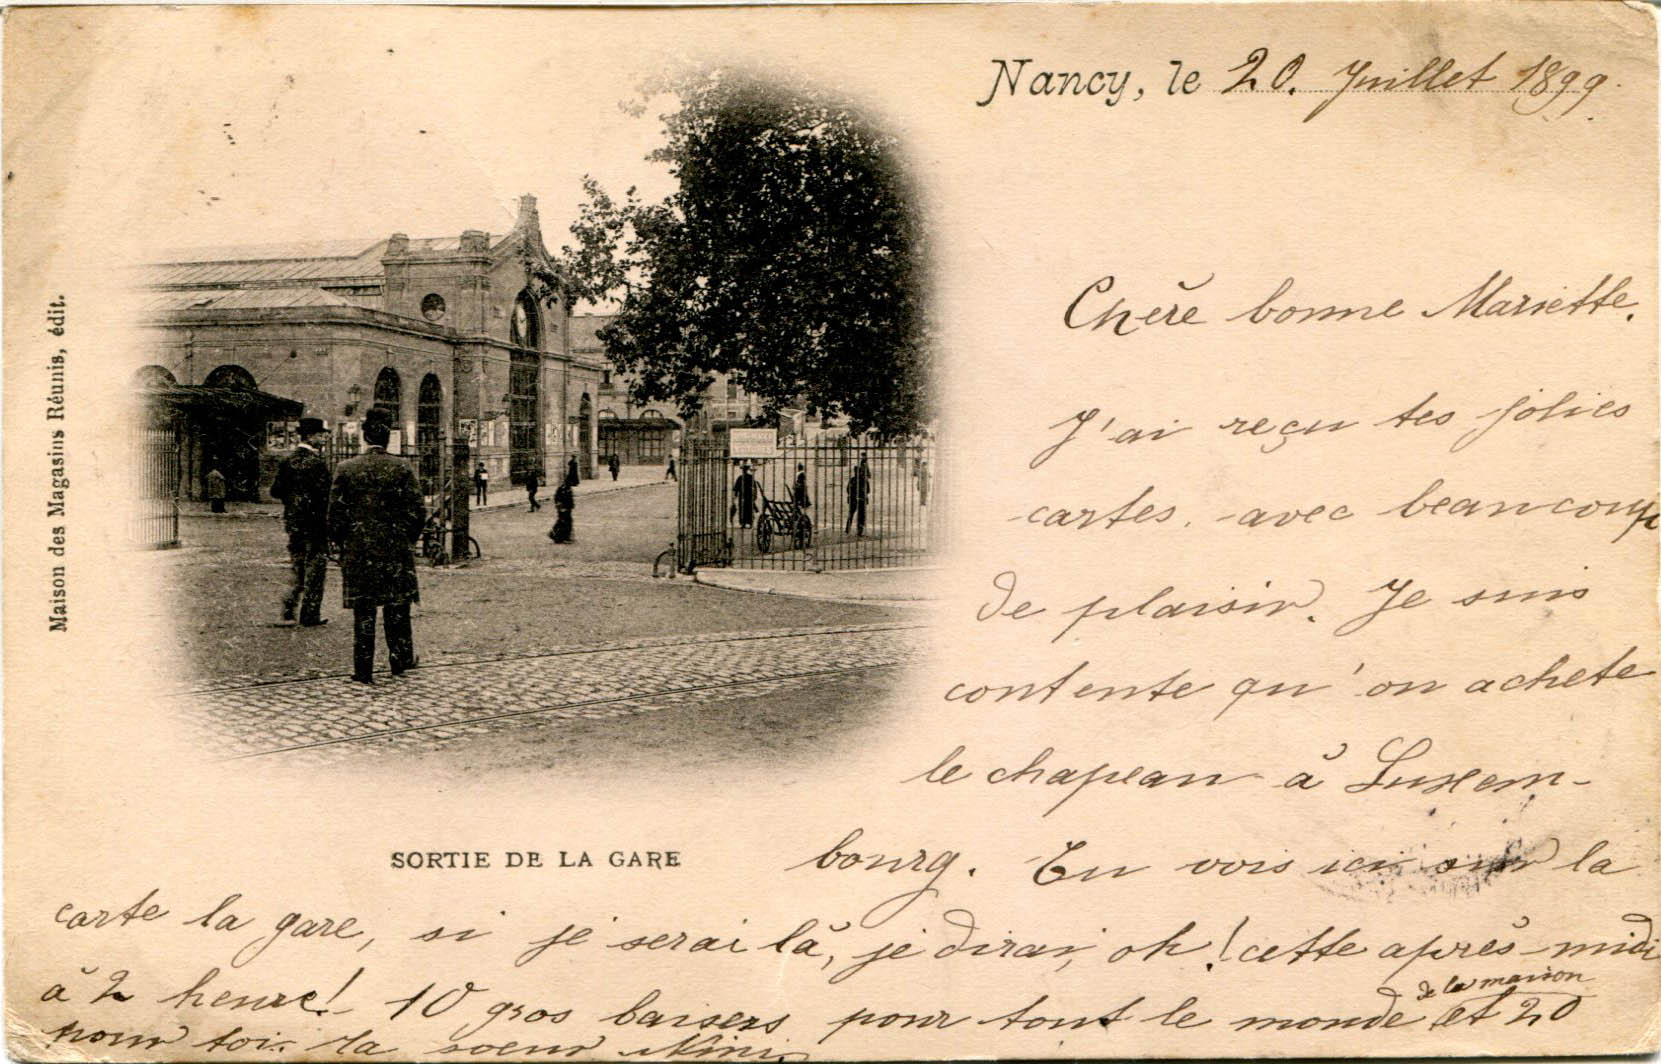 Nancy, le 20. Juillet 1899.
Chère bonne Mariette.
J'ai reçu tes jolies
cartes, avec beaucoup
de plaisir. Je suis
contente qu'on achete
le chapeau à Luxem-
bourg. Tu vois ici sur la
carte la gare, si je serai là, je dirai, oh! cette après-midi
à 2 heure! 10 gros baisers pour tout le monde de la maison et 20
pour toi. la soeur Mimi.
SORTIE DE LA GARE
Maison des Magasins Réunis, édit.